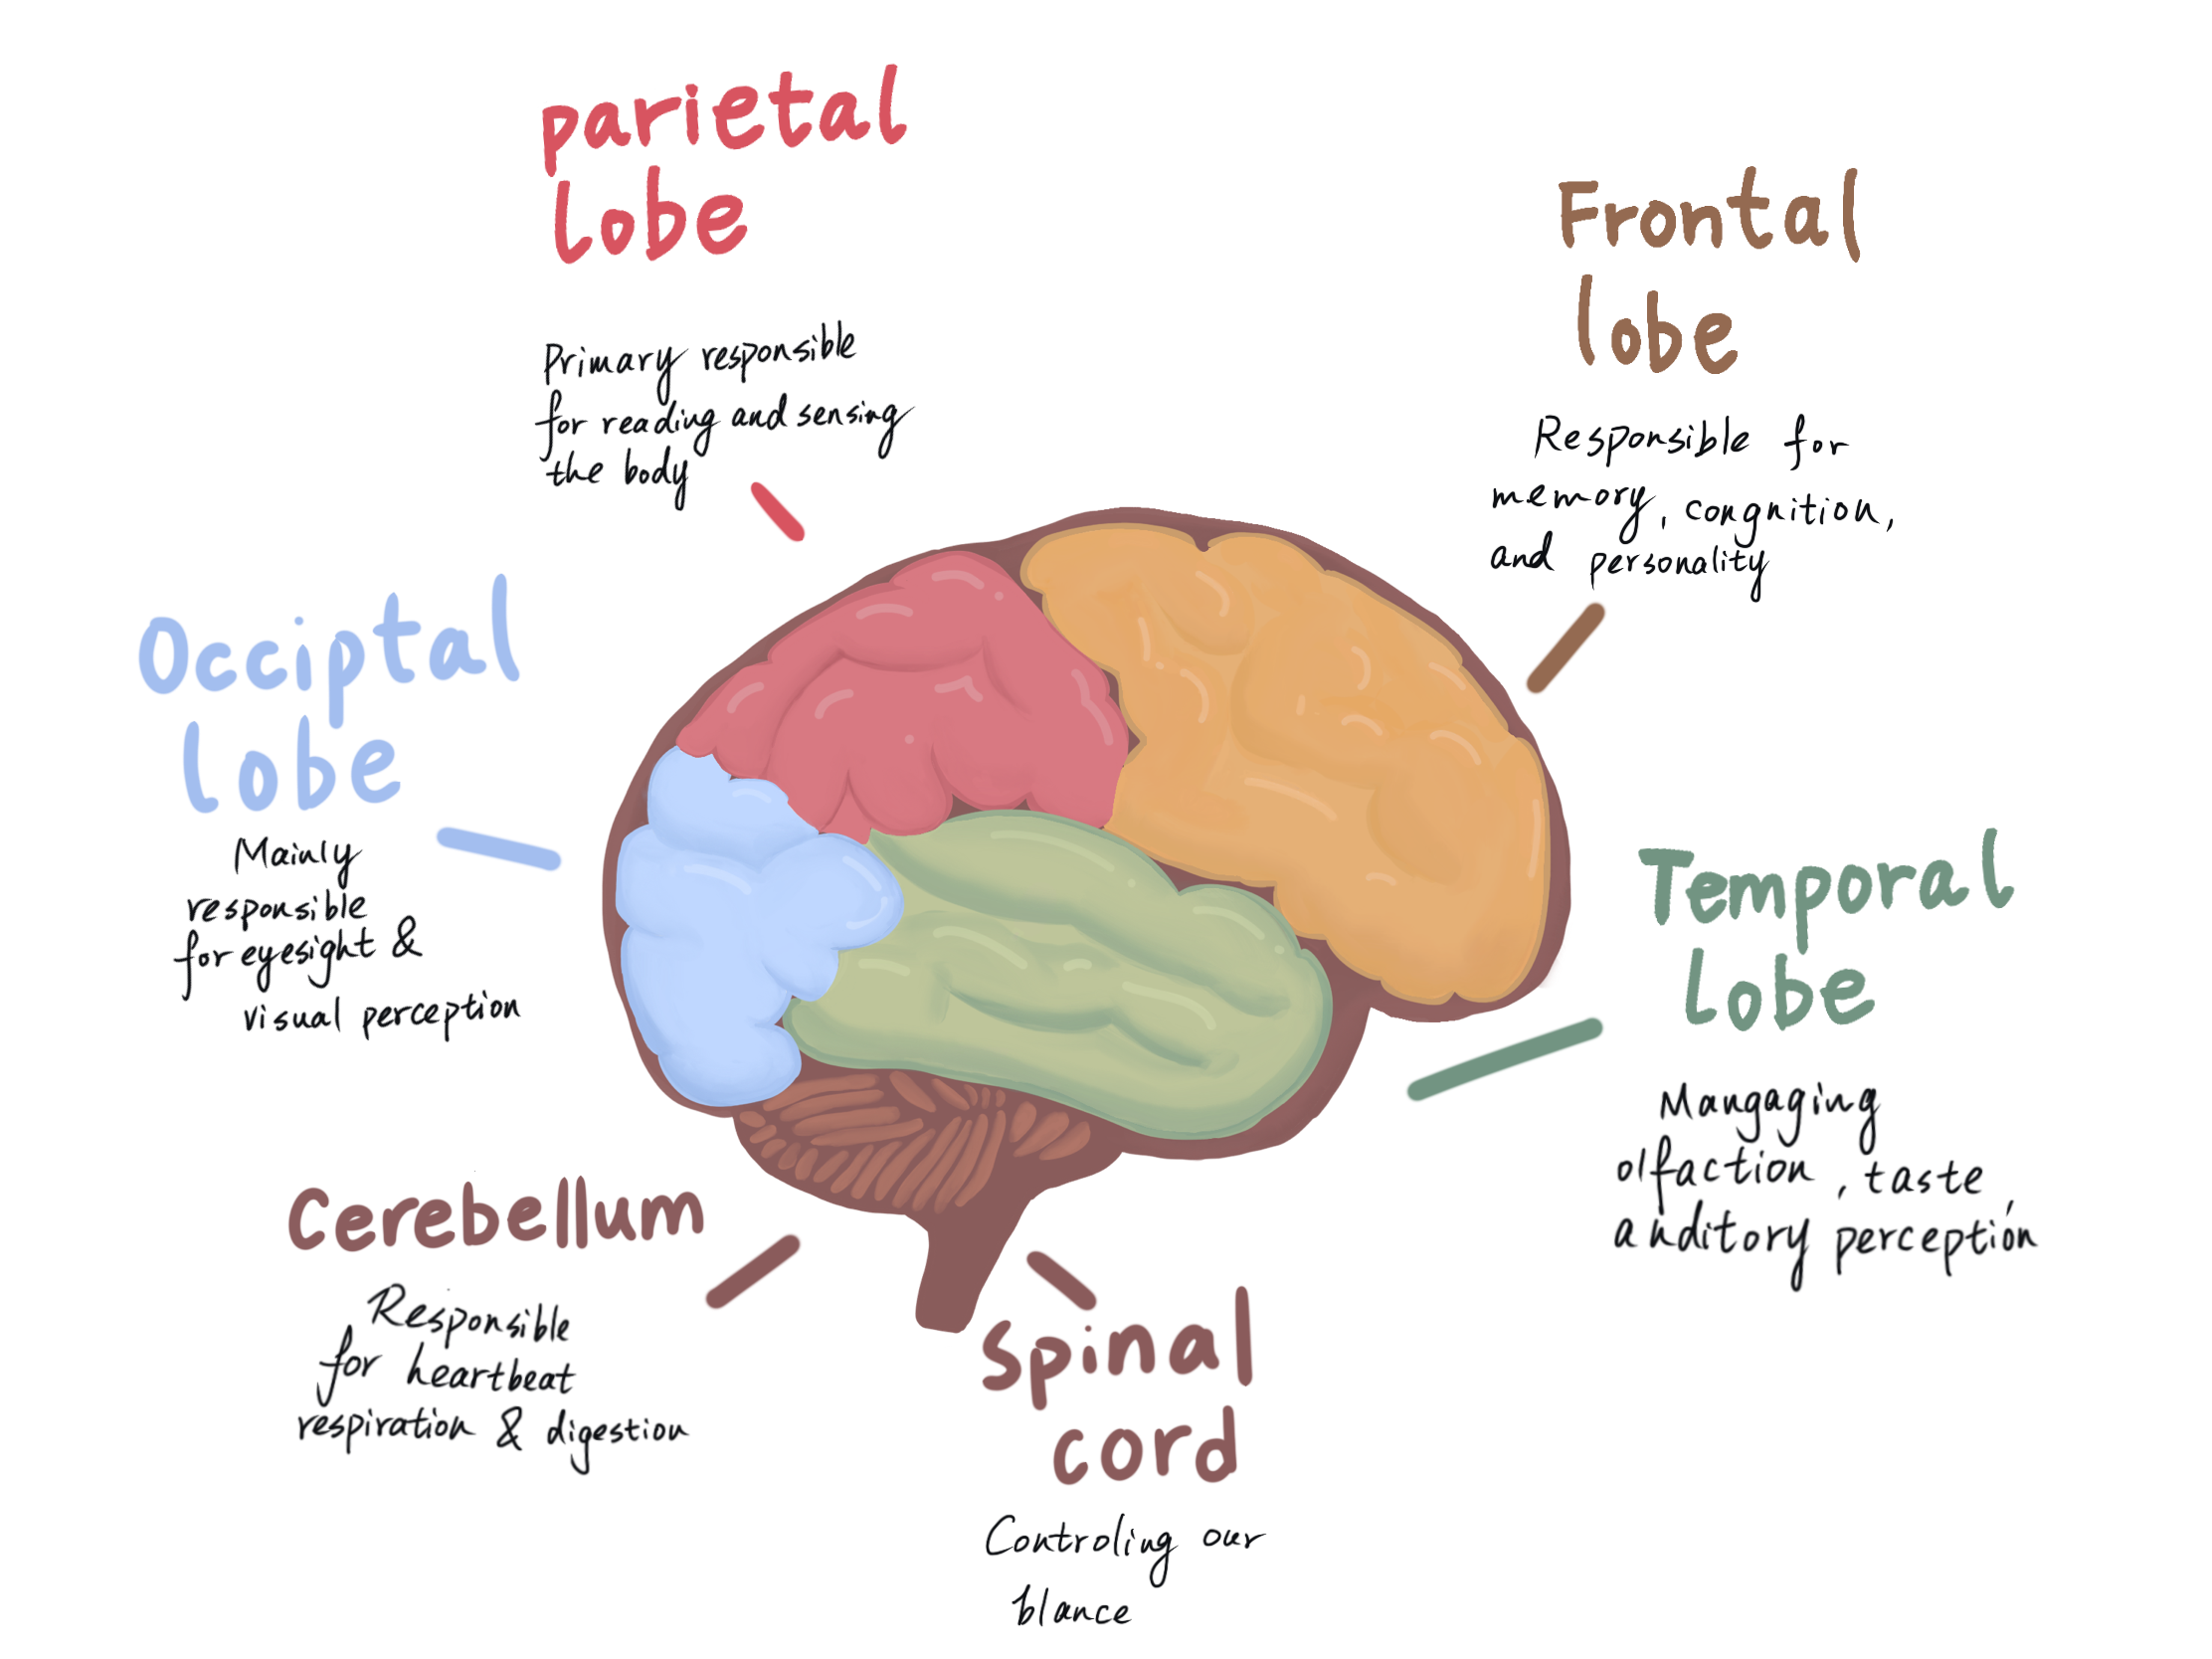 parietal
lobe
Primary responsible
for reading and sensing
the body
Frontal
lobe
Responsible for
memory, congnition,
and personality
Occiptal
lobe
Mainly
responsible
for eyesight &
visual perception
Temporal
lobe
Mangaging
olfaction, taste
auditory perception
Cerebellum
Responsible
for heartbeat
respiration & digestion
Spinal
cord
Controling our
blance